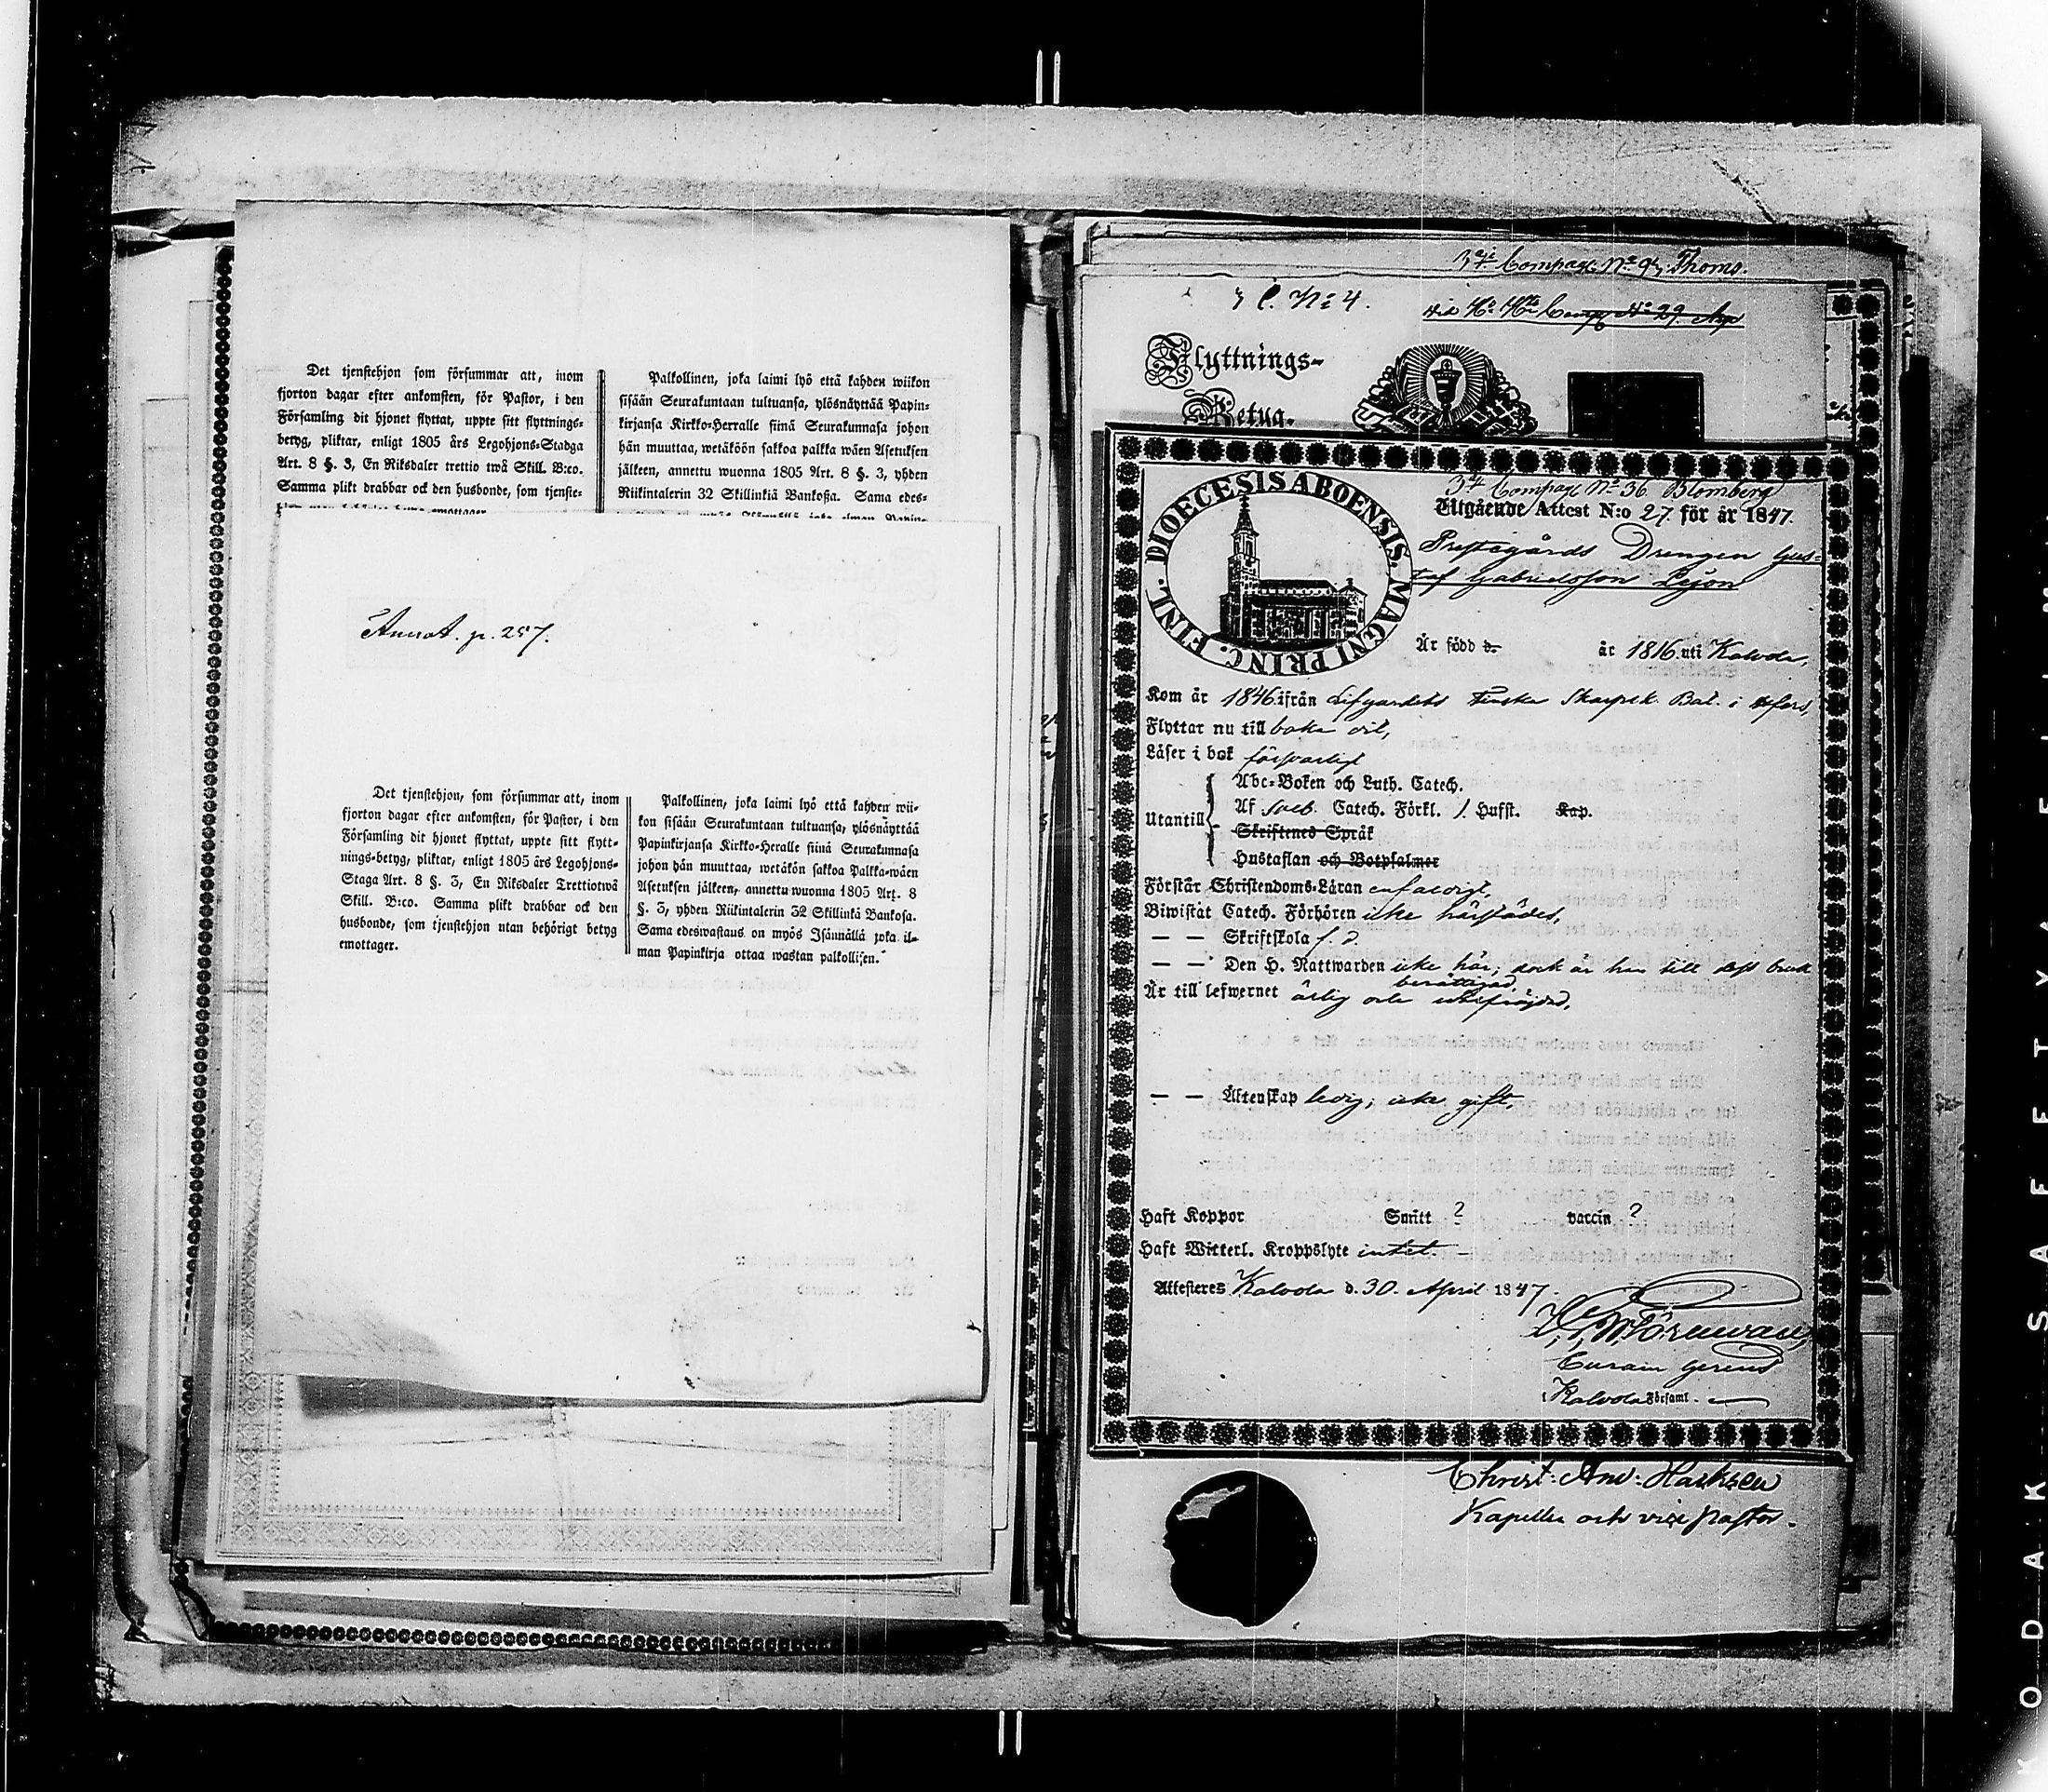 Det tjenstehjon som försummar att, inom
fjorton dagar efter ankomsten, för Pastor, i den
Församling dit hjonet flyttat, uppte sitt flyttnings-
betyg, pliktar, enligt 1805 års Legohjons-Stadga
Art. 8 §. 3, En Riksdaler trettio twå Skill. B:co.
Samma plikt drabbar ock den husbonde, som tjenste-
Palkollinen, joka laimi lyö että kahden wiikon
sisään Seurakuntaan tultuansa, ylösnäyttää Papin-
kirjansa Kirkko-Herralle siinä Seurakunnasa johon
hän muuttaa, wetäköön sakkoa palkka wäen Asetuksen
jälkeen, annettu wuonna 1805 Art. 8 §. 3, yhden
Riikintalerin 32 Skillinkiä Bankosa. Sama edes-
Annot. p. 257.
Det tjenstehjon, som försummar att, inom
fjorton dagar efter ankomsten, för Pastor, i den
Församling dit hjonet flyttat, uppte sitt flytt-
nings-betyg, pliktar, enligt 1805 års Legohjons-
Staga Art. 8 §. 3, En Riksdaler Trettiotwå
Skill. B:co. Samma plikt drabbar ock den
husbonde, som tjenstehjon utan behörigt betyg
emottager.
Palkollinen, joka laimi lyö että kahden wii-
kon sisään Seurakuntaan tultuansa, ylösnäyttää
Papinkirjansa Kirkko-Heralle siinä Seurakunnasa
johon hän muuttaa, wetäkön sakkoa Palkka-wäen
Asetuksen jälkeen, annettu wuonna 1805 Art. 8
§. 3, yhden Riikintalerin 32 Skillinkä Bankosa.
Sama edeswastaus on myös Isännällä joka il-
man Papinkirja ottaa wastan palkollisen.
3dje Compag. No 9, Thoms.
3 C. No 4.
Compg No 29
Flyttnings-
Betyg.
FINL. DIOECESIS ABOENSIS. MAGNI PRINC.
3dje Compag No 36 Blomberg
Utgående Attest N:o 27. för år 1847.
Prestagårds Drengen Gus-
taf Gabrielsson Lejon
Är född d. år 1816. uti Kalvola,
Kom år 1846. ifrån Lifgardets Finska Skarpsk. Bat. i Hfors,
Flyttar nu till baka dit,
Läser i bok försvarligt
Utantill
Abc-Boken och Luth. Catech.
Af Sveb. Catech. Förkl. 1. Hufst. Kap.
Skriftenes Språk
Hustaflan och Botpsalmer
Förstår Christendoms-Läran enfaldigt,
Biwistat Catech. Förhören icke härstädes,
— — Skriftskola s. d.
— — Den H. Nattwarden icke här; dock är han till dess bruk
berättigad,
Är till lefwernet ärlig och
— — Äktenskap ledig; icke gift,
Haft Koppor Smitt ? vaccin ?
Haft Witterl. Kroppslyte intet. —
Attesteres Kalvola d. 30. April 1847.
Curam Gerens
i Kalvola Församl.
Christ. And.
Kapellan och vice pastor.
KODAK SAFETY FILM